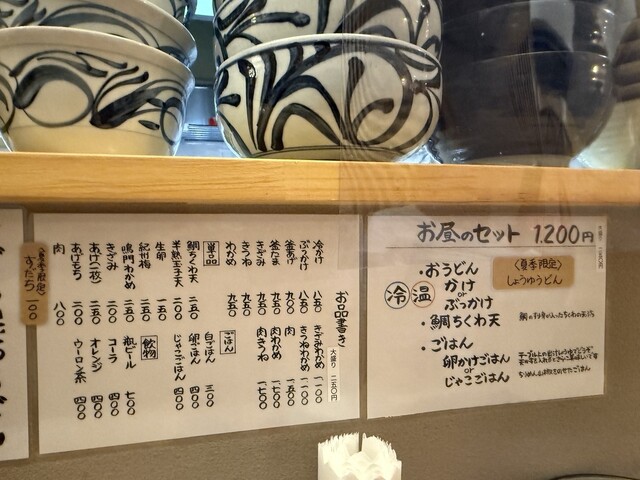 お品書き
大盛り 二五〇円
冷かけ 八五〇
ぶっかけ 八五〇
釜あげ 八五〇
釜たま 九五〇
きざみ 九五〇
きつね 九五〇
わかめ 九五〇
きざみわかめ 一一〇〇
きつねわかめ 一一〇〇
肉 一五〇〇
肉わかめ 一七〇〇
肉きつね 一七〇〇
単品
鯛ちくわ天 二五〇
半熟玉子天 二〇〇
生卵 一五〇
紀州梅 二五〇
鳴門わかめ 二五〇
きざみ 二〇〇
あげ(一枚) 二〇〇
あげもち 二〇〇
肉 八〇〇
〈夏季限定〉
すだち 一〇〇
ごはん
白ごはん 三〇〇
卵ごはん 四〇〇
じゃこごはん 四〇〇
飲物
瓶ビール 七〇〇
コーラ 四〇〇
オレンジ 四〇〇
ウーロン茶 四〇〇
お昼のセット 1.200円
・おうどん
冷 温 かけ
or
ぶっかけ
〈夏季限定〉
しょうゆうどん
・鯛ちくわ天
・ごはん
卵かけごはん
or
じゃこごはん